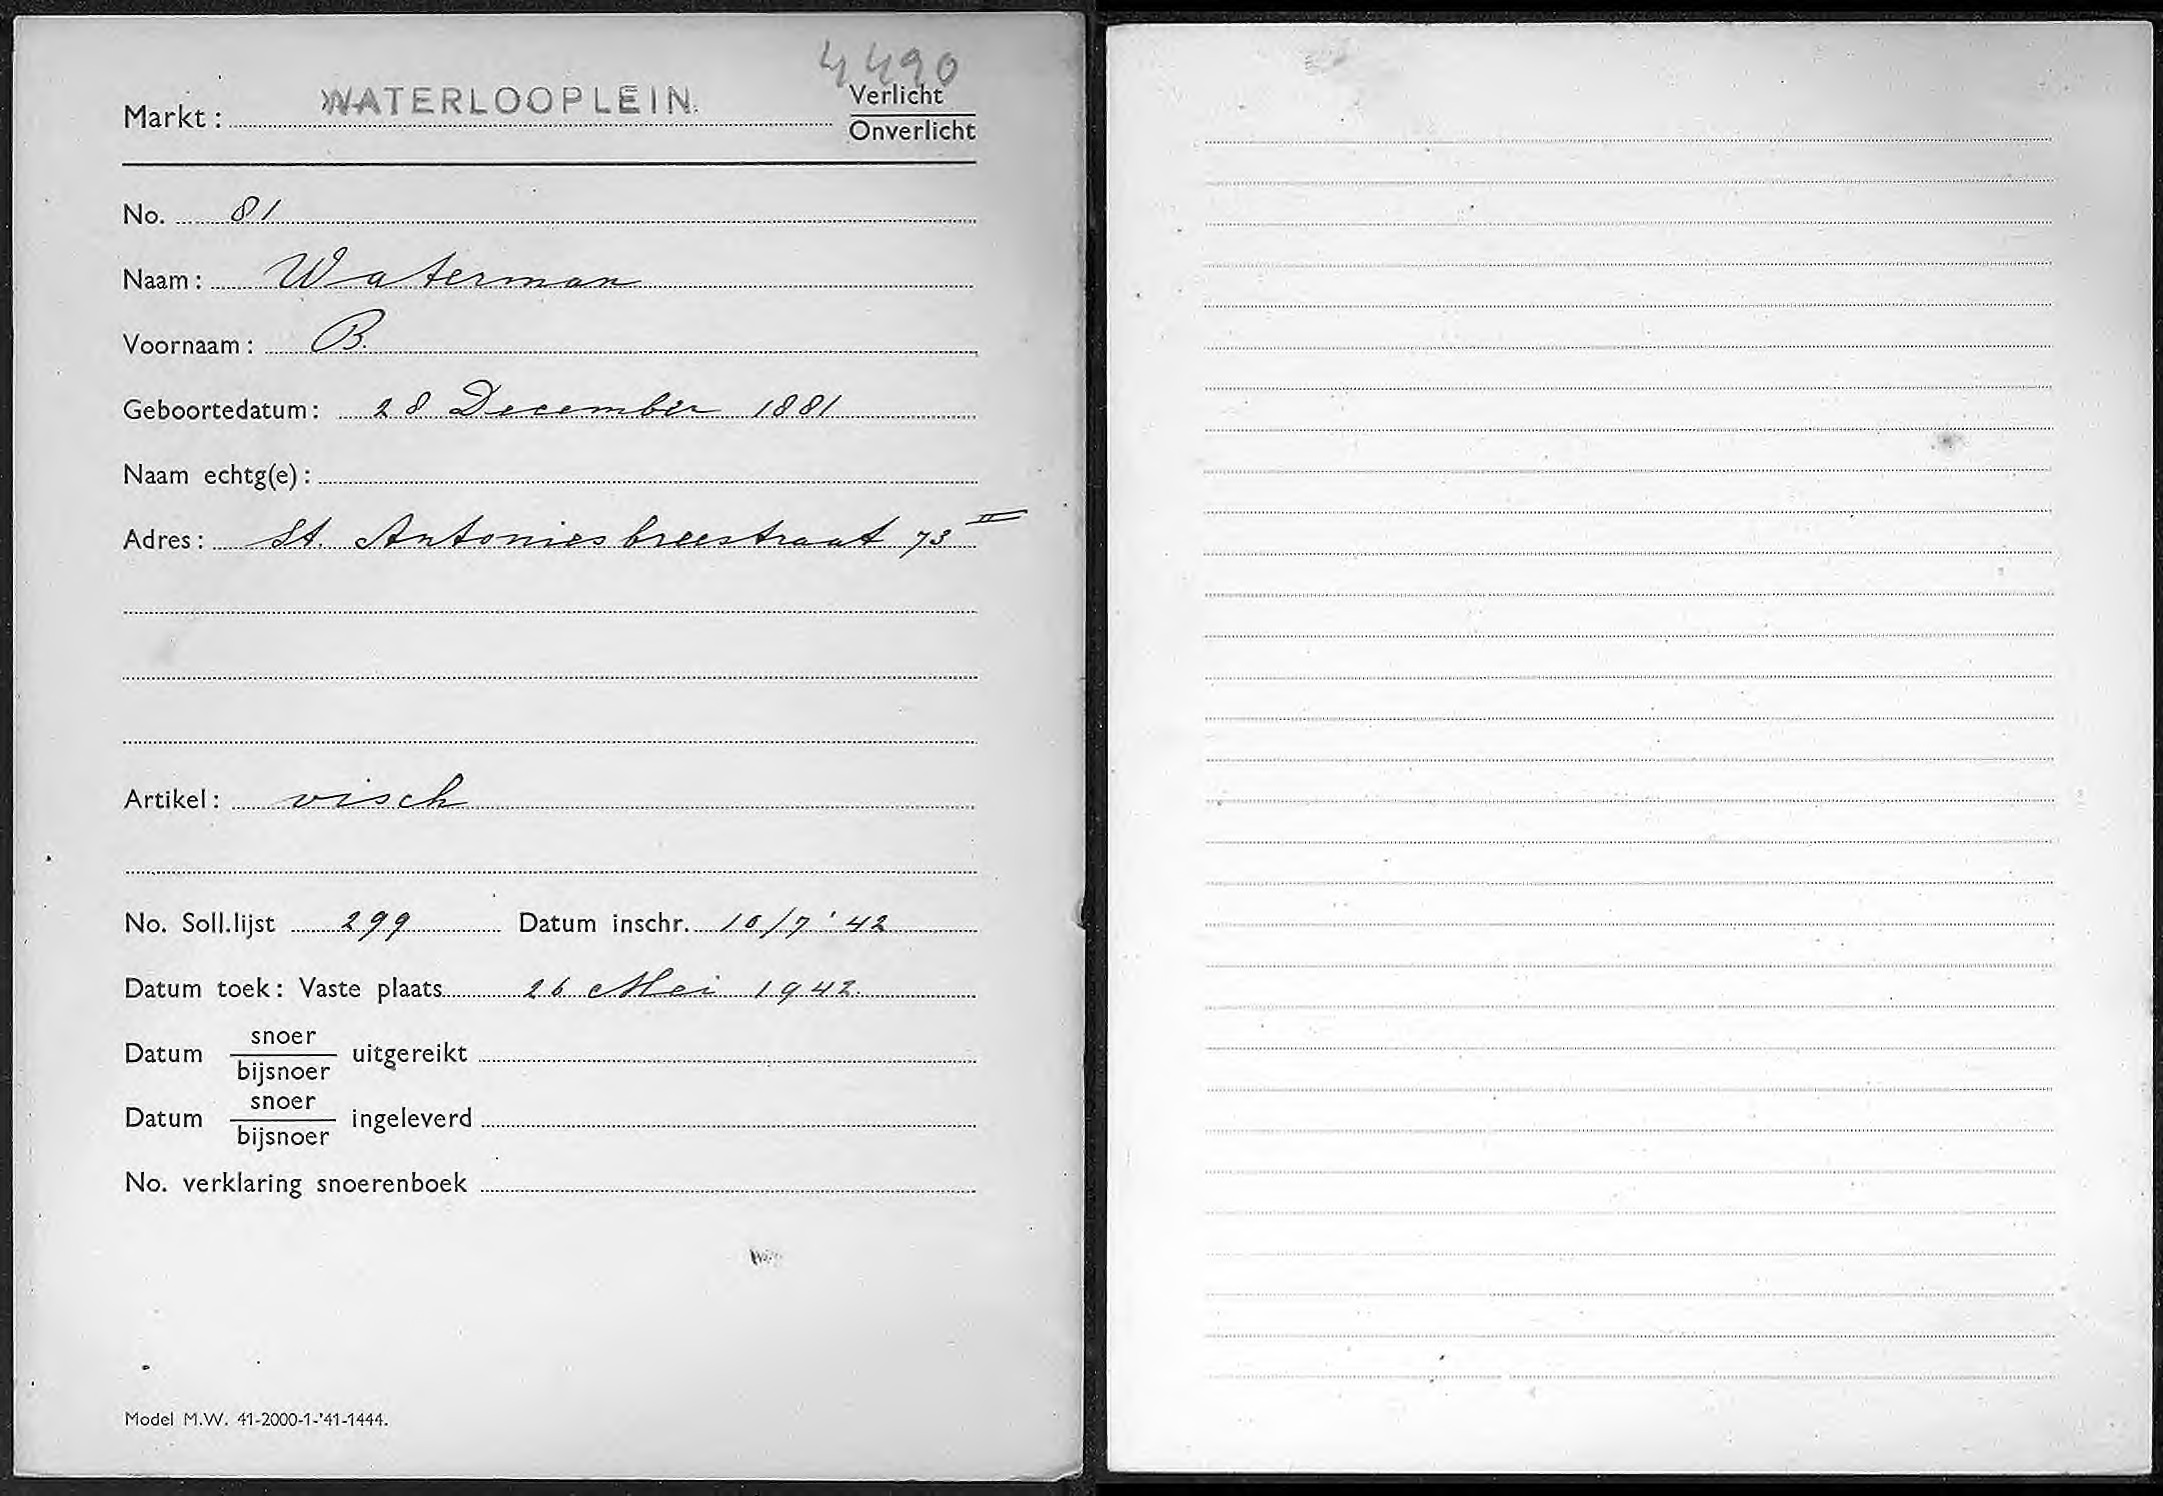 4490
Markt: WATERLOOPLEIN. Verlicht
Onverlicht
No. 81
Naam: Waterman
Voornaam: B.
Geboortedatum: 28 December 1881
Naam echtg(e):
Adres: St. Antoniesbreestraat 73 II
Artikel: visch
No. Soll.lijst 299 Datum inschr. 10/7 '42
Datum toek: Vaste plaats 26 Mei 1942.
Datum snoer
bijsnoer uitgereikt
Datum snoer
bijsnoer ingeleverd
No. verklaring snoerenboek
Model M.W. 41-2000-1-'41-1444.